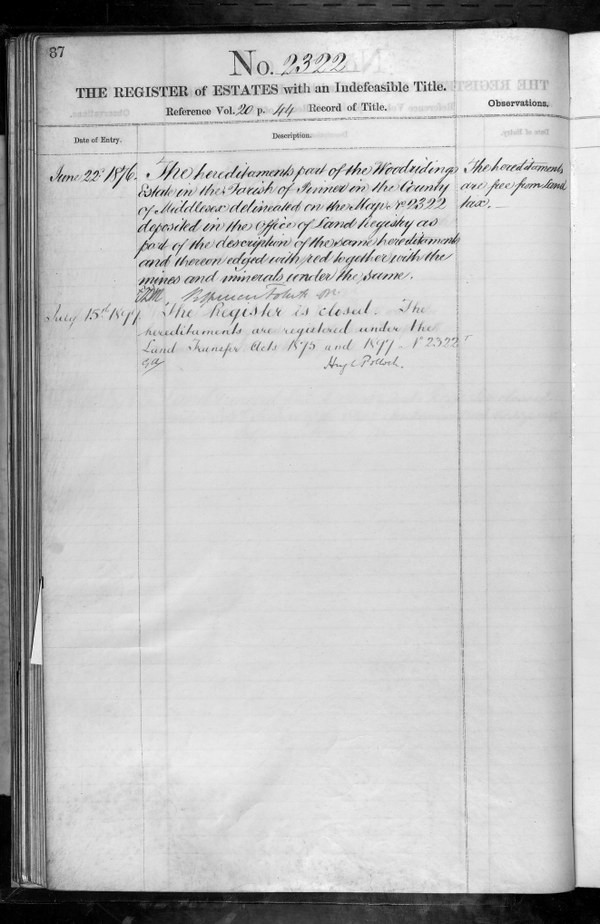 87
No. 2322
THE REGISTER of ESTATES with an Indefeasible Title.
Reference Vol. 20 p. 44 Record of Title.
Observations.
Date of Entry.
Description.
June 22d 1876.
The hereditaments part of the Woodridings
Estate in the Parish of Pinner in the County
of Middlesex delineated on the Map No 2322
deposited in the Office of Land Registry as
part of the description of the same hereditaments
and thereon edged with red together with the
mines and minerals under the same.
The hereditaments
are free from land
tax.
July 15th 1899
The Register is closed. The
hereditaments are registered under the
Land Transfer Acts 1875 and 1897 No 2322
Hugh Pollock.